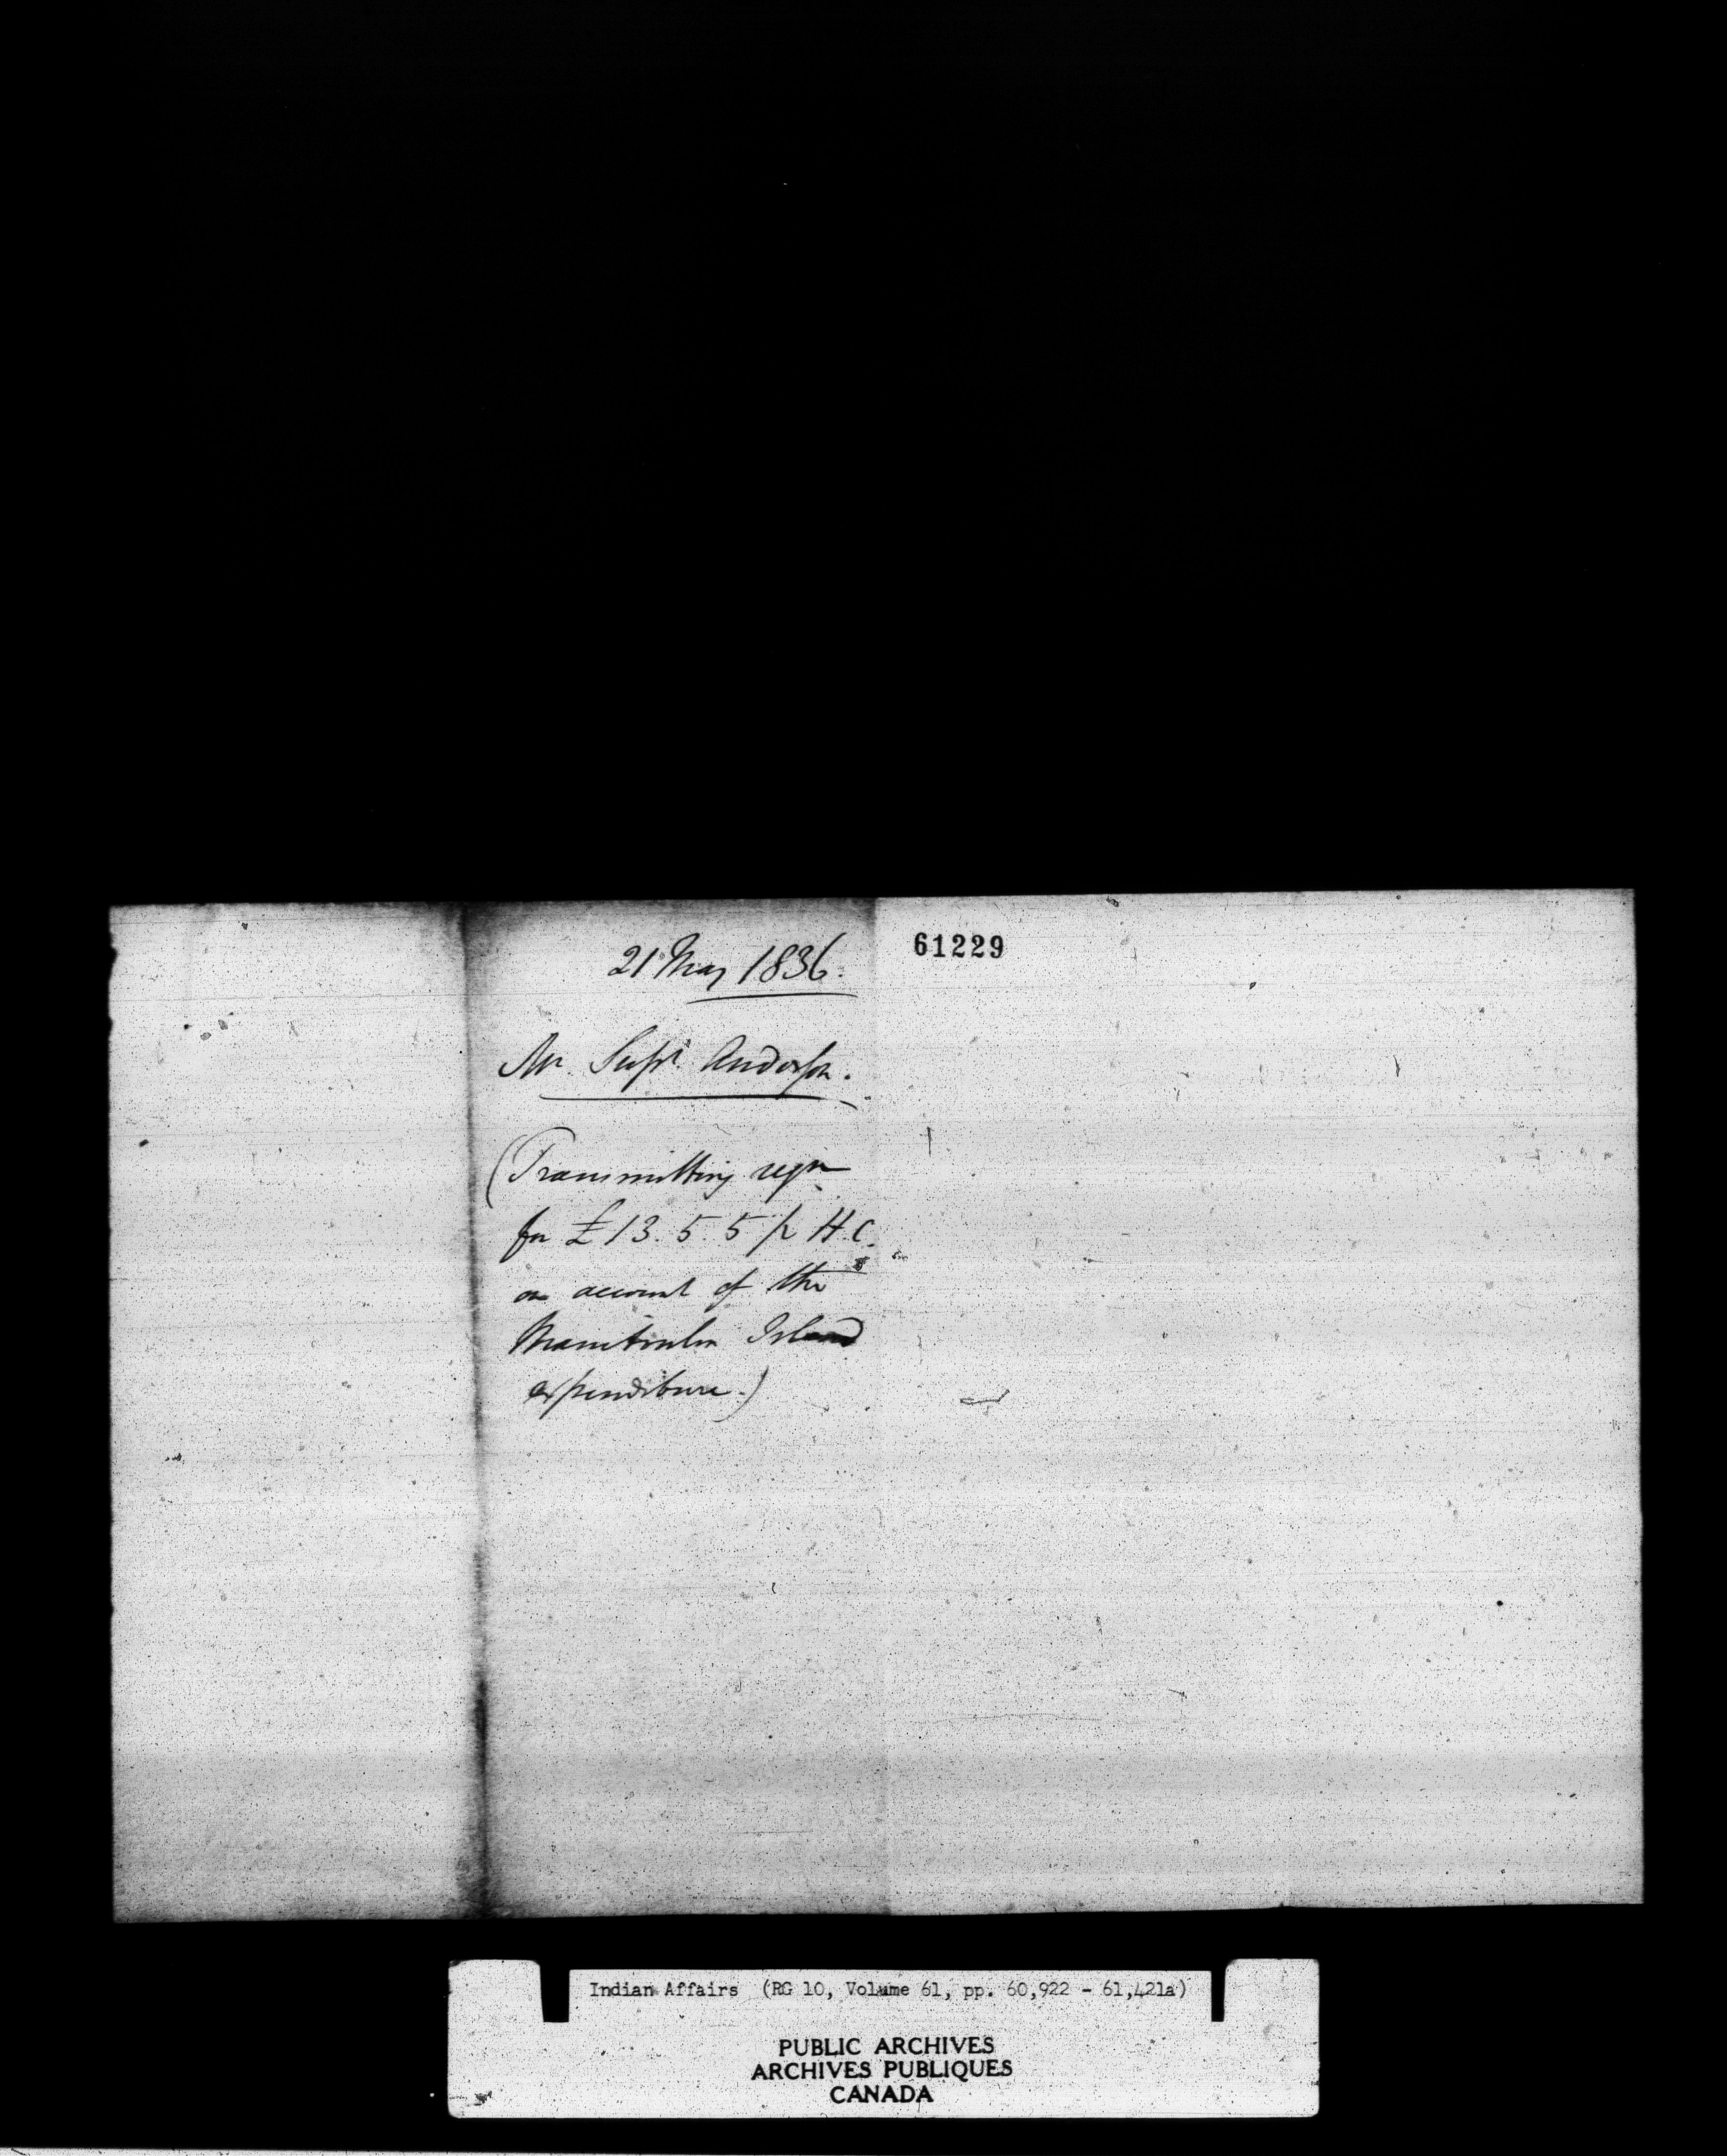 21 May 1836.
61229
Mr. Supt. Anderson.
(Transmitting reqn
for £13.5.5 p H.C.
on account of the
Manitoulin Island
expenditure.)
Indian Affairs (RG 10, Volume 61, pp. 60,922 - 61,421a)
PUBLIC ARCHIVES
ARCHIVES PUBLIQUES
CANADA